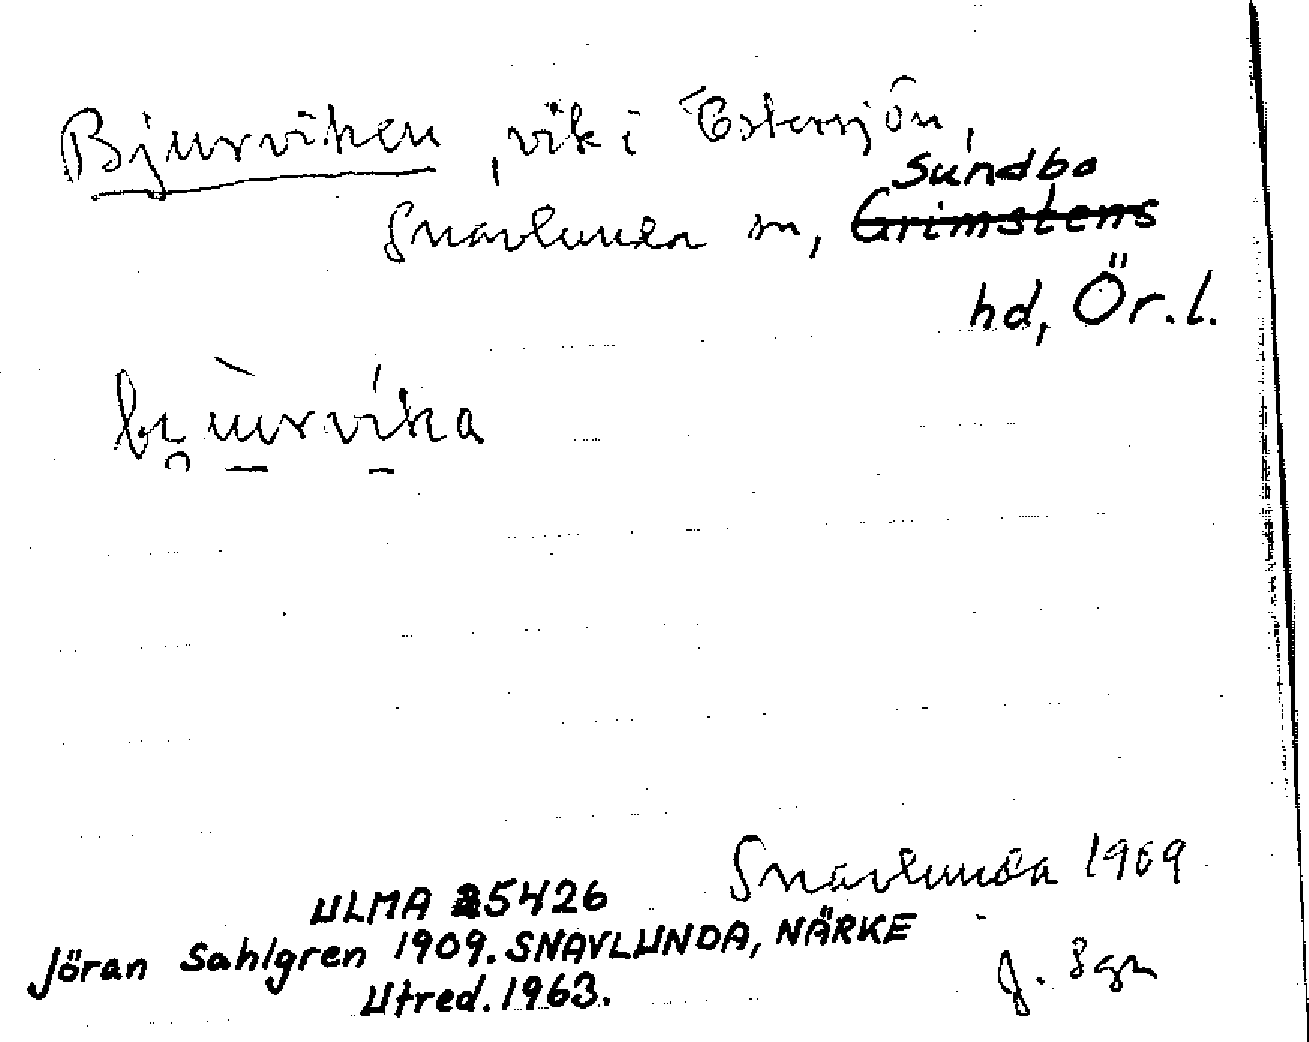 Bjurviken, vik i Östersjön,
Sundbo
Snavlunda sn, Grimstens
hd, Ör.l.
bi̯ùrvíka
Snavlunda 1909
ULMA 25426
Jöran Sahlgren 1909. SNAVLUNDA, NÄRKE
J. Sgn
Utred. 1963.